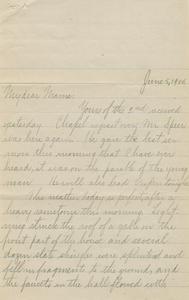 June 5, 1906
My dear Mama:
Yours of the 2nd received
yesterday. Chapel
Mr. Speer
was here again. He gave the best ser-
mon this morning that I have ever
heard, it was on the parable of the young
man. He will also tonight
This matter today is after a
heavy this morning. Light-
ning struck the roof of a gable on the
front part of the house and several
slate shingles were splintered and
fell in fragments to the ground, and
the faucets in the hall flowed with